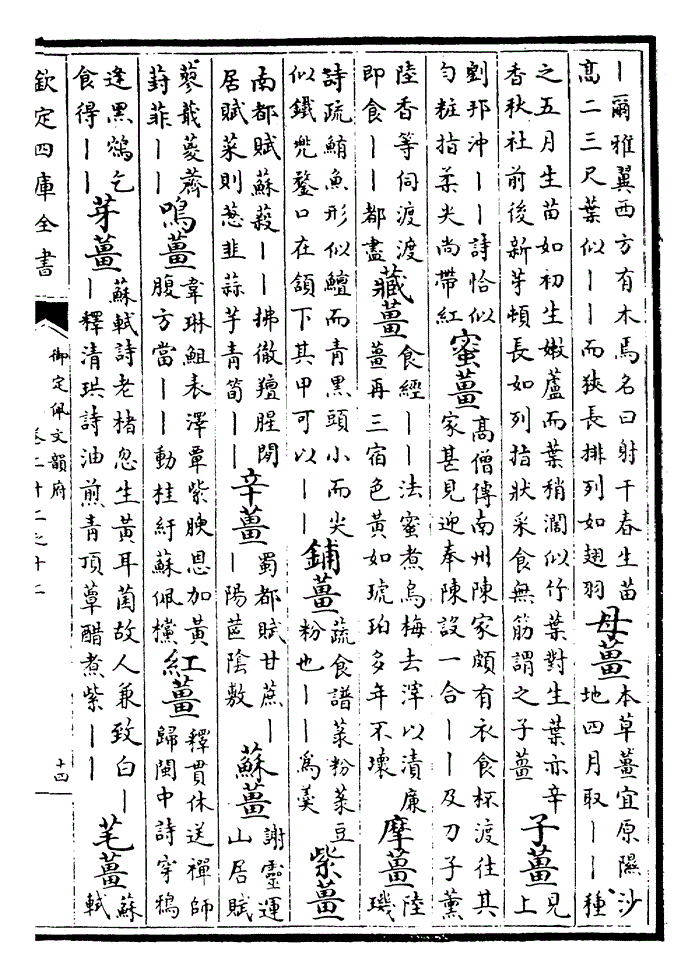 ｜爾雅翼西方有木焉名曰射干春生苗
高二三尺葉似｜｜而狹長排列如翅羽
母薑
本草薑宜原隰沙
地四月取｜｜種
之五月生苗如初生嫩蘆而葉稍濶似竹葉對生葉亦辛
香秋社前後新芽頓長如列指狀采食無筋謂之子薑
子薑
見
上
劉邦沖｜｜詩恰似
勻粧指柔尖尚帶紅
蜜薑
高僧傳南州陳家頗有衣食杯渡往其
家甚見迎奉陳設一合｜｜及刀子薰
陸香等伺渡渡
即食｜｜都盡
藏薑
食經｜｜法蜜煮烏梅去滓以漬廉
薑再三宿色黄如琥珀多年不壞
摩薑
陸
璣
詩疏鮪魚形似鱣而青黑頭小而尖
似鐵兜鍪口在頷下其甲可以｜｜
鋪薑
蔬食譜菜粉菜豆
粉也｜｜為羮
紫薑
南都賦蘇蔱｜｜拂徹羶腥閒
居賦菜則葱韭蒜芋青筍｜｜
辛薑
蜀都賦甘蔗｜
｜陽蓲陰敷
蘇薑
謝靈運
山居賦
蓼蕺蔆薺
葑菲｜｜
鳴薑
韋琳䱇表澤覃紫腴恩加黄
腹方當｜｜動桂紆蘇佩欓
紅薑
釋貫休送禪師
歸閩中詩穿鵶
逢黑鷲乞
食得｜｜
芽薑
蘇軾詩老楮忽生黄耳菌故人兼致白｜
｜釋清珙詩油煎青頂蕈醋煮紫｜｜
芼薑
蘇
軾
欽定四庫全書
御定佩文韻府
卷二十二之十二
十四